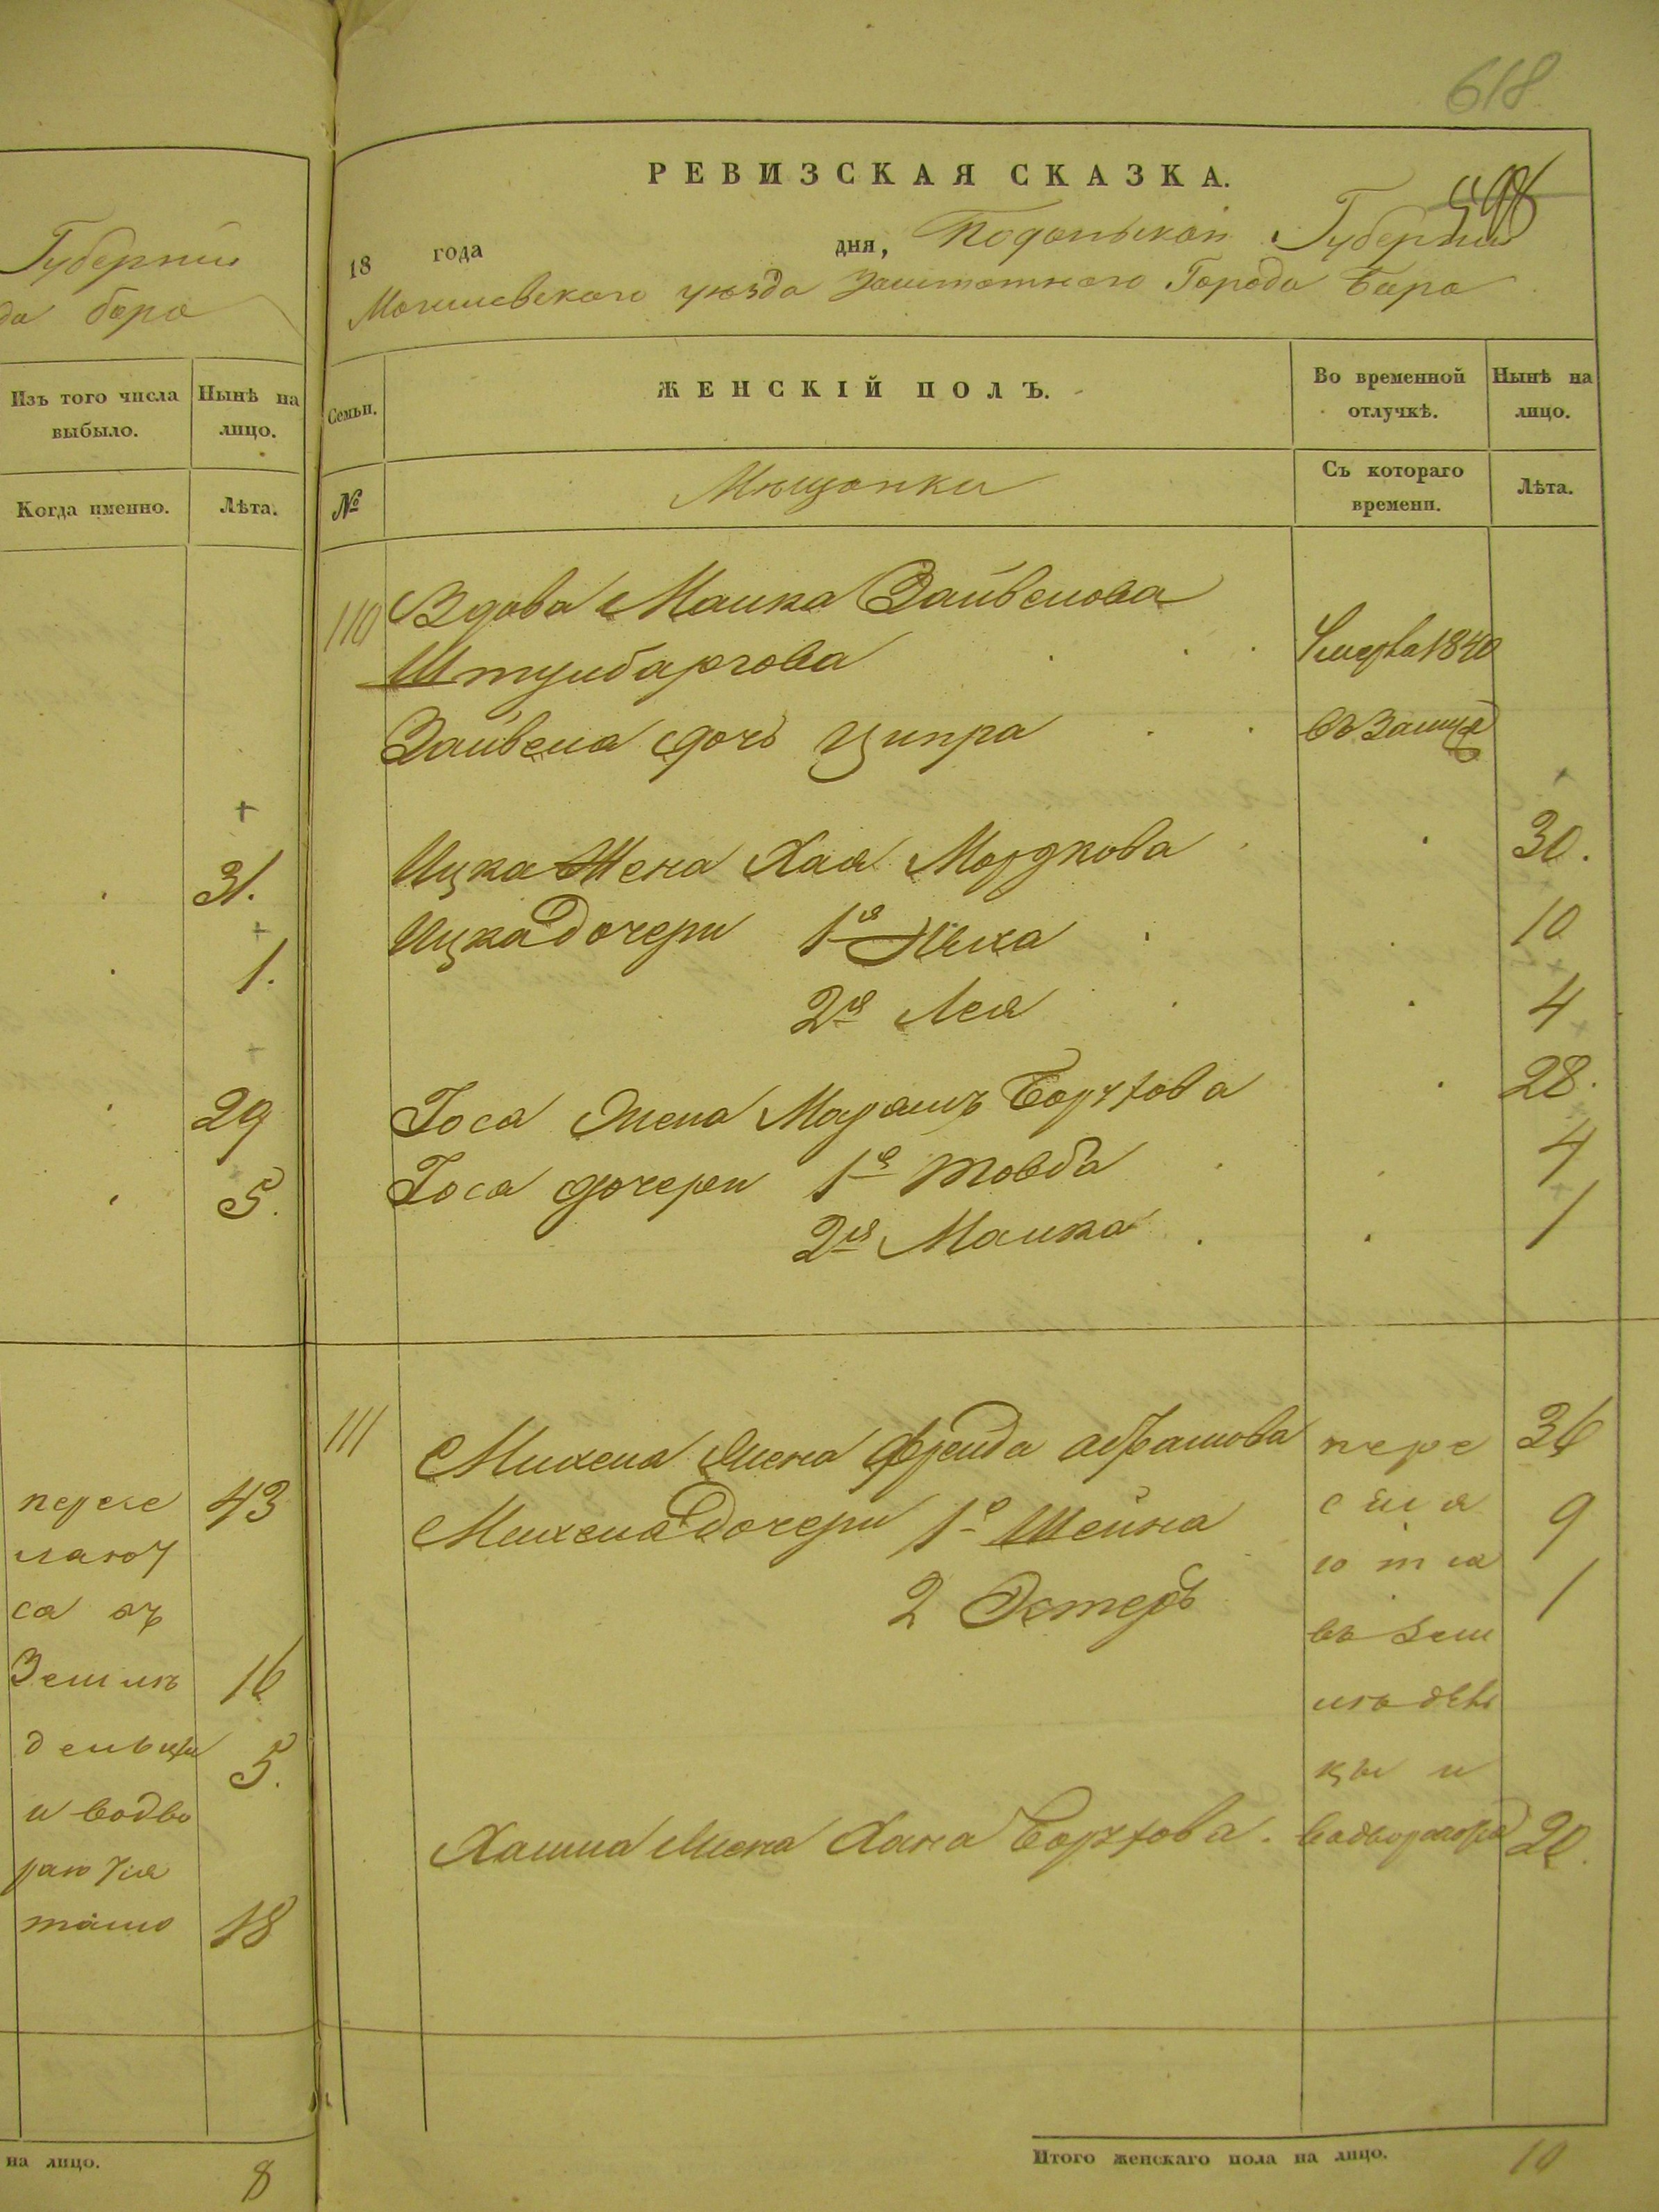 Губернии
да бара
Изъ того числа выбыло.
Нынѣ на лицо.
Когда именно.
Лѣта.
31.
1.
29
5.
пересе 43
лают
са въ
Земле 16
дельцы 5.
и водво
раются
тамо 18
на лицо.
8
618
598
РЕВИЗСКАЯ СКАЗКА.
18 года дня, Подольской Губернии
Могилевского уѣзда Заштатного Города Бара
Семьи.
ЖЕНСКІЙ ПОЛЪ.
Во временной отлучкѣ.
Нынѣ на лицо.
№
Мѣщанки
Съ котораго времени.
Лѣта.
110 Вдова Малка Зайвелова
Штулбаргова Умерла 1840
Зайвела дочь Ципра въ Замуж
Ицка Жена Хая Мордкова 30.
Ицка Дочери 1я 10
2я Лея 4
Іоса Жена Марьямъ Борухова 28.
Іоса дочери 1я Товба 4
2я Малка 1
111 Михела Жена Фрейда Абрамова пере 36
Михела Дочери 1я Шейна села 9
ются
2 Эстеръ 1
въ Зем
ледѣл
цы и
Хаима Жена Хана Борухова. 20.
Итого женскаго пола на лицо. 10